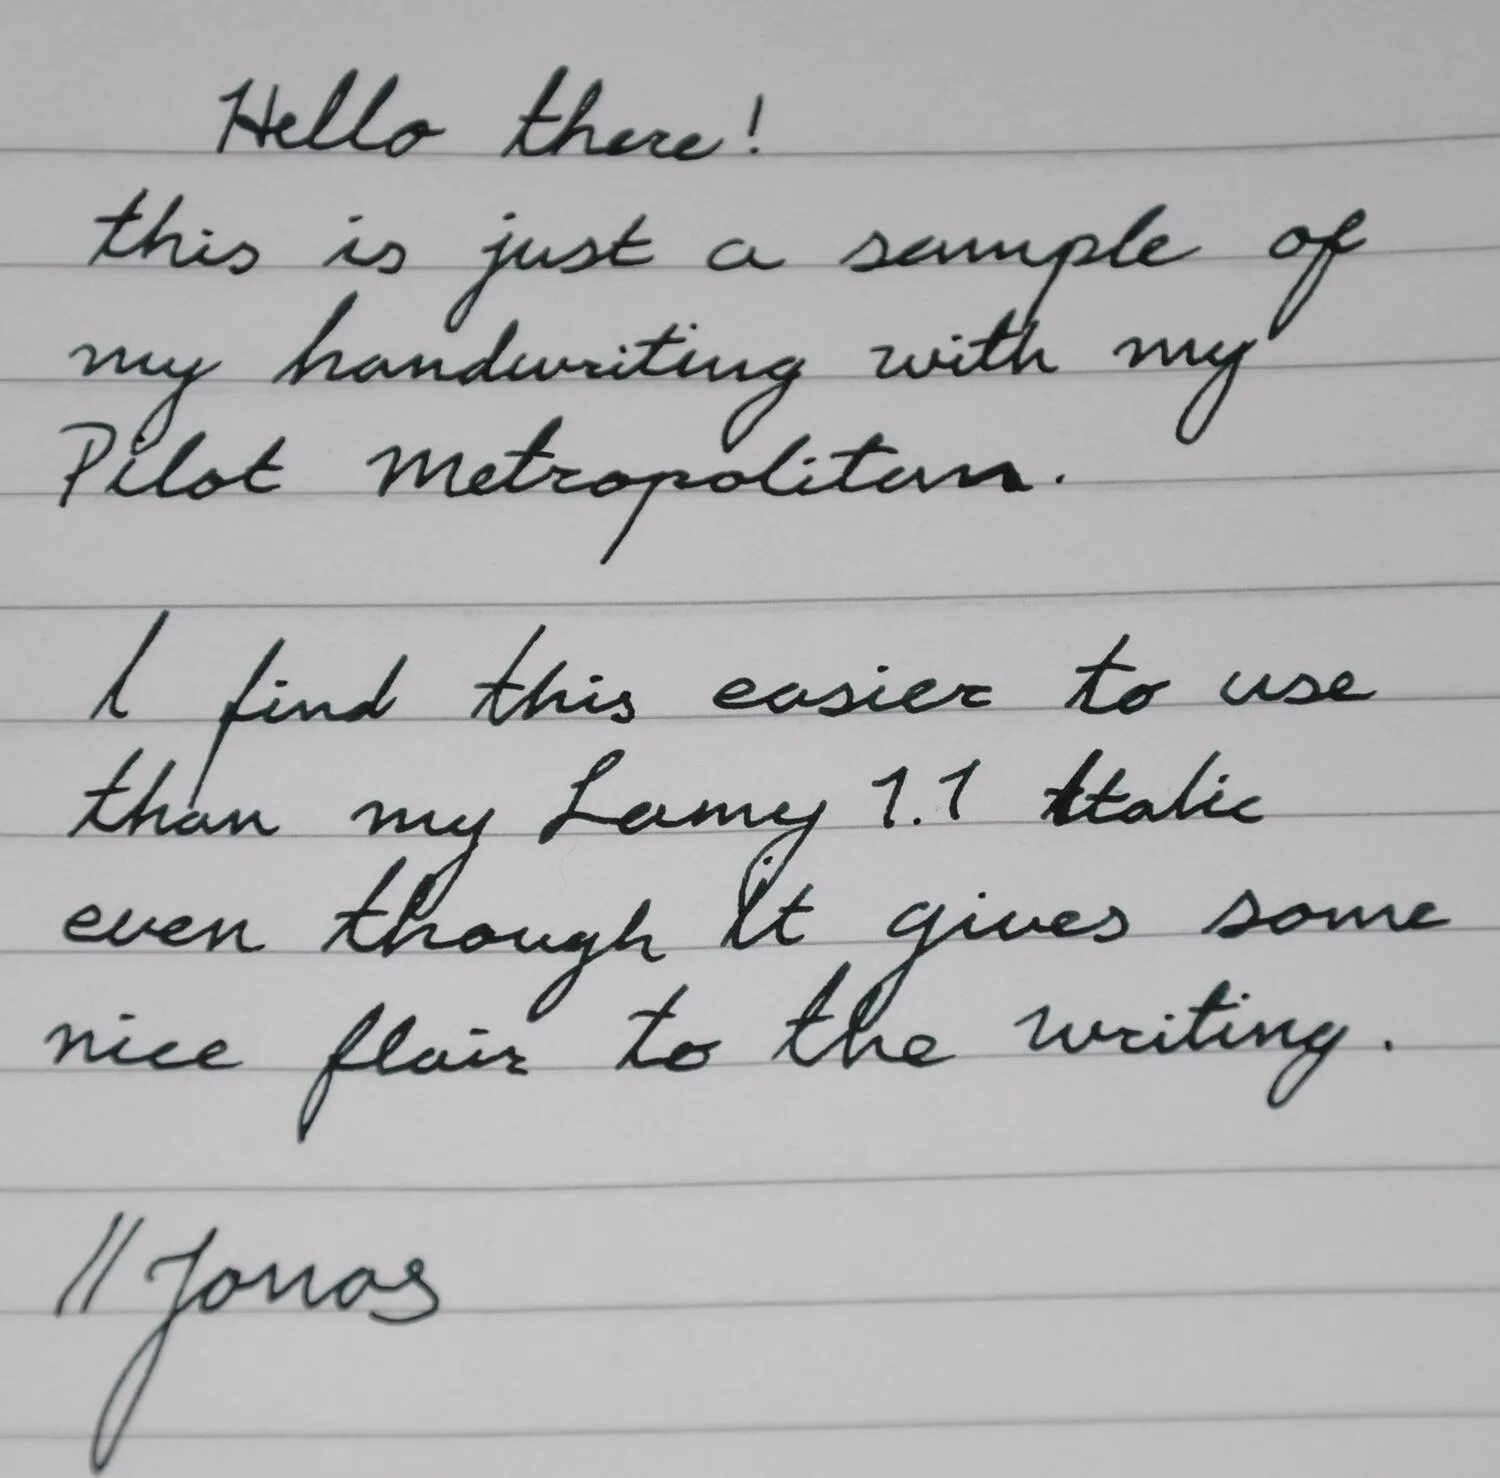 Hello there!
this is just a sample of
my handwriting with my
Pilot Metropolitan.
I find this easier to use
than my Lamy 1.1 Italic
even though it gives some
nice flair to the writing.
//Jonas